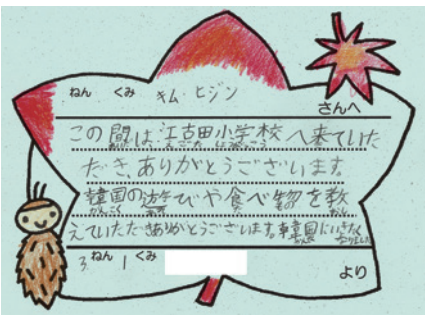 ねん くみ キム ヒジン
さんへ
この間は、江古田小学校へ来ていた
だき、ありがとうございます。
韓国の遊びや食べ物を教
えていただきありがとうございます。韓国にいきたくなりました
3 ねん 1 くみ
より